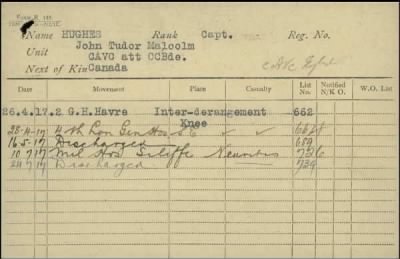 FORM B. 103.
Name HUGHES Rank Capt. Reg. No.
John Tudor Malcolm
Unit CAVC att CCBde.
Next of Kin Canada
Date Movement Place Casualty List No. Notified N/K O. W.O. List
26.4.17. 2 G.H. Havre Inter-derangement 662
Knee
28-4-17 4th Lon Gen Hos
16-5-17 Discharged 684
10 7 17 Mil Hos Neuritis
Discharged 739